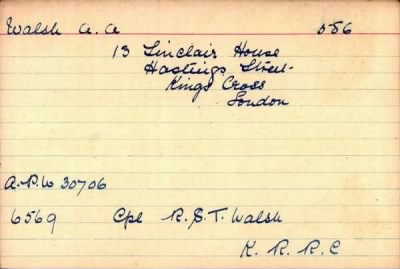 Walsh A. A 556
13 Sinclair House
Hastings Street
Kings Cross
London
A.P.W 30706
6569 Cpl R.S.T. Walsh
K. R. R. C